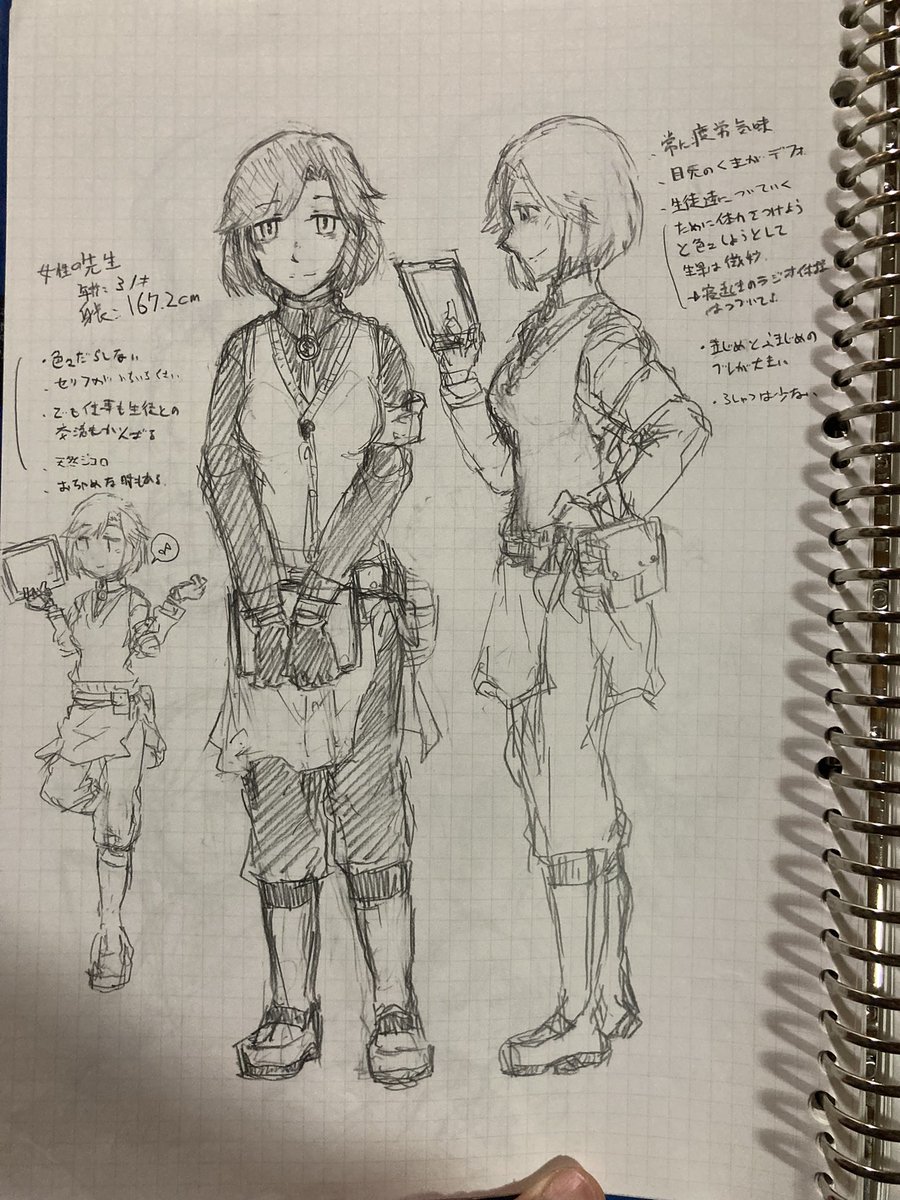 女性の先生
年齢:31才
身長:167.2cm
・色々だらしない
・セリフが
・でも仕事も生徒との
交流もがんばる
・天然ジゴロ
・おちゃめな時もある
・常に疲労気味
・目元のくまがデフォ
・生徒達についていく
ために体力をつけよう
と色々しようとして
結果は微妙
→寝起きのラジオ体操
はつづいてる
・まじめとふまじめの
ブレが大きい
・ふしゃつは少ない